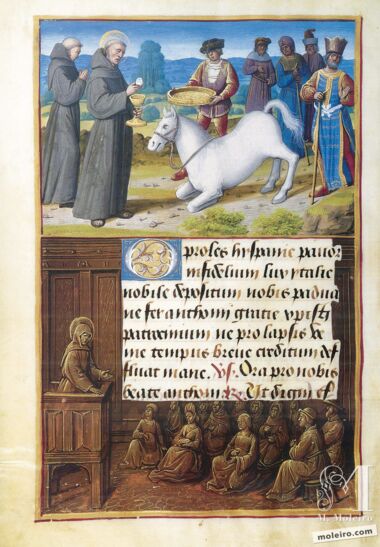 O proles hyspanie pavor
infidelium lux ytalie
nobile depositum nobis padua
ne fer anthoni gratie xpisti
patrocinium ne prolapsis ve
nie tempus breve creditum def
fluat inane. Vs. Ora pro nobis
beate anthoni. R. Ut digni ef
M
M. Moleiro
moleiro.com